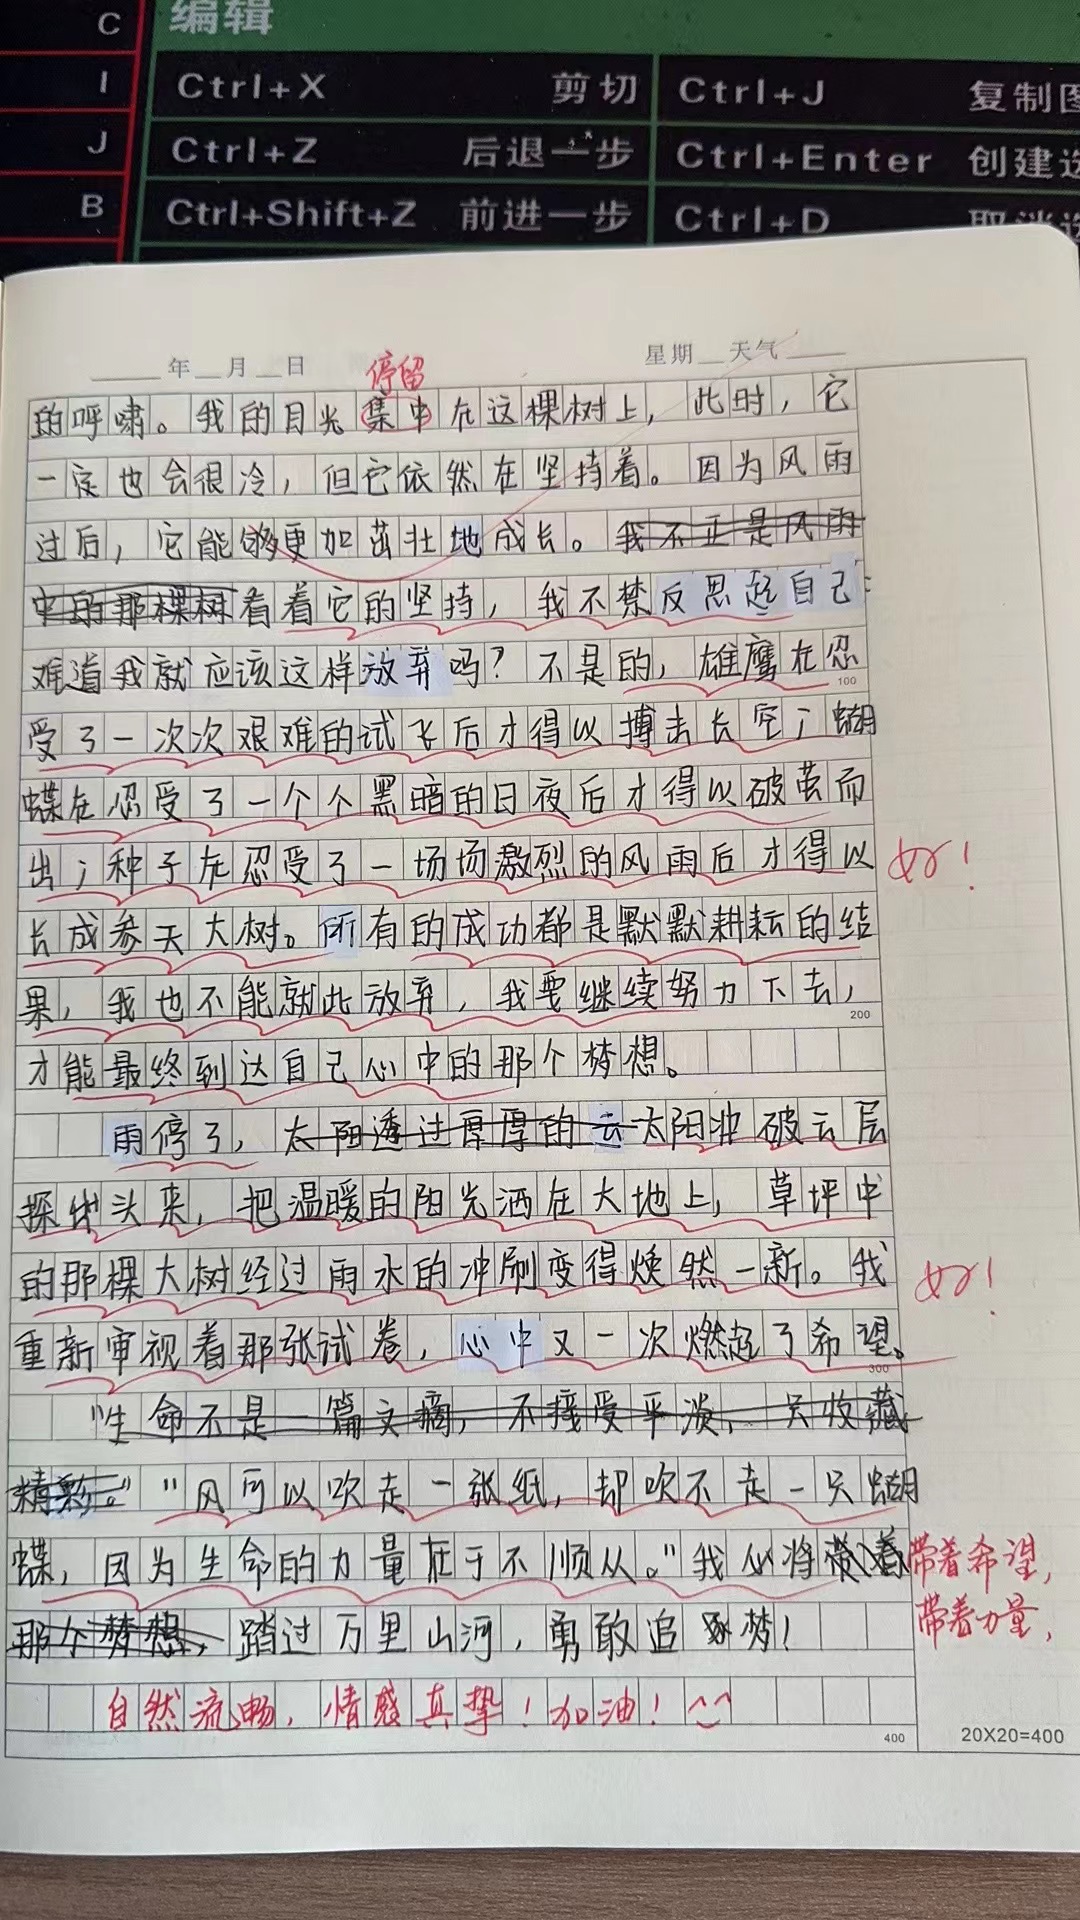 C
编辑
I
Ctrl+X 剪切 Ctrl+J 复制图
J
Ctrl+Z 后退一步 Ctrl+Enter 创建选
B
Ctrl+Shift+Z 前进一步 Ctrl+D 取消选
年 月 日 星期 天气
停留
的呼啸。我的目光集中在这棵树上，此时，它
一定也会很冷，但它依然在坚持着。因为风雨
过后，它能够更加茁壮地成长。我不正是风雨
中的那棵树看着它的坚持，我不禁反思起自己：
难道我就应该这样放弃吗？不是的，雄鹰在忍
100
受了一次次艰难的试飞后才得以搏击长空；蝴
蝶在忍受了一个个黑暗的日夜后才得以破茧而
出；种子在忍受了一场场激烈的风雨后才得以
好！
长成参天大树。所有的成功都是默默耕耘的结
果，我也不能就此放弃，我要继续努力下去，
200
才能最终到达自己心中的那个梦想。
雨停了，太阳透过厚厚的云太阳冲破云层
探出头来，把温暖的阳光洒在大地上，草坪中
的那棵大树经过雨水的冲刷变得焕然一新。我
好！
重新审视着那张试卷，心中又一次燃起了希望。
300
“生命不是一篇文摘，不接受平淡，只收藏
精彩。”“风可以吹走一张纸，却吹不走一只蝴
蝶，因为生命的力量在于不顺从。”我必将带着
带着希望，
带着力量，
那个梦想，踏过万里山河，勇敢追逐梦！
自然流畅，情感真挚！加油！
400
20X20=400